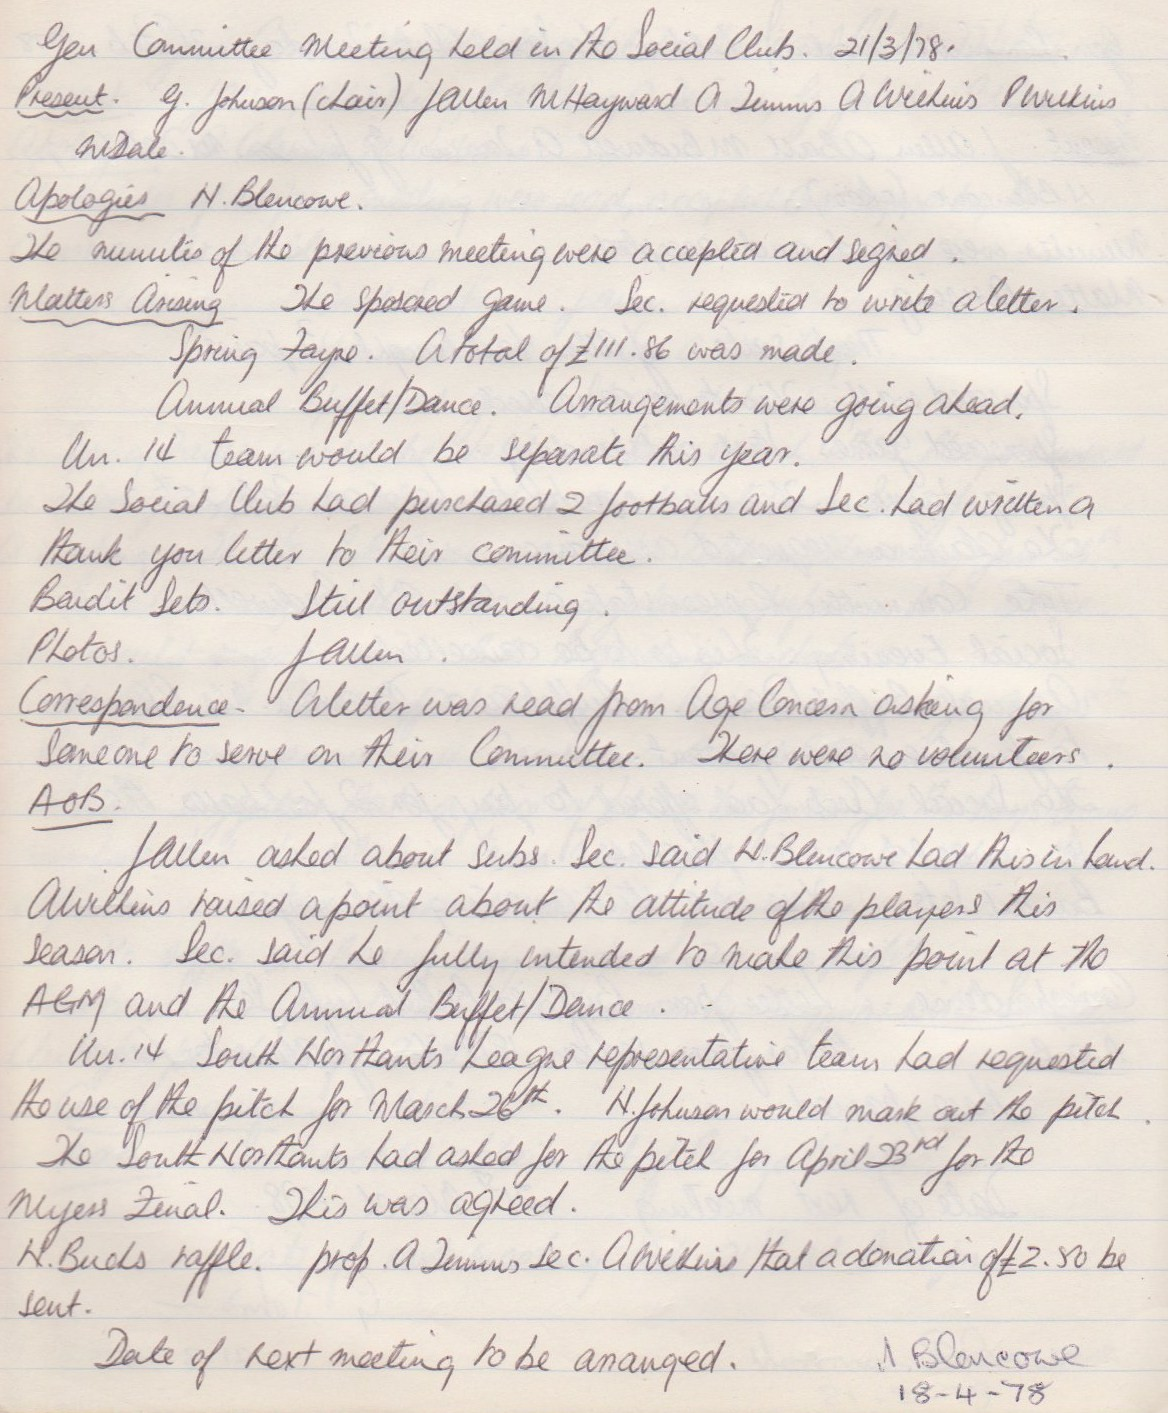 Gen Committee Meeting held in the Social Club. 21/3/78.
Present. G. Johnson (chair) J Allen M Hayward A Timms A Wilkins P Wilkins
M Dale.
Apologies N. Blencowe.
The minutes of the previous meeting were accepted and signed.
Matters Arising The sposored game. Sec. requested to write a letter.
Spring Fayre. A total of £111.86 was made.
Annual Buffet/Dance. Arrangements were going ahead.
Un. 14 team would be separate this year.
The Social Club had purchased 2 footballs and Sec. had written a
thank you letter to their committee.
Bandit Sets. Still outstanding.
Photos. J Allen.
Correspondence - A letter was read from Age Concern asking for
someone to serve on their Committee. There were no volunteers.
AOB.
J Allen asked about subs. Sec. said N. Blencowe had this in hand.
A Wilkins raised a point about the attitude of the players this
season. Sec. said he fully intended to make this point at the
AGM and the Annual Buffet/Dance.
Un. 14 South Northants League representative team had requested
the use of the pitch for March 26th. N. Johnson would mark out the pitch.
The South Northants had asked for the pitch for April 23rd for the
Myers Final. This was agreed.
N. Bucks raffle. prop. A Timms Sec. A Wilkins that a donation of £2.50 be
sent.
Date of next meeting to be arranged. N Blencowe
18-4-78